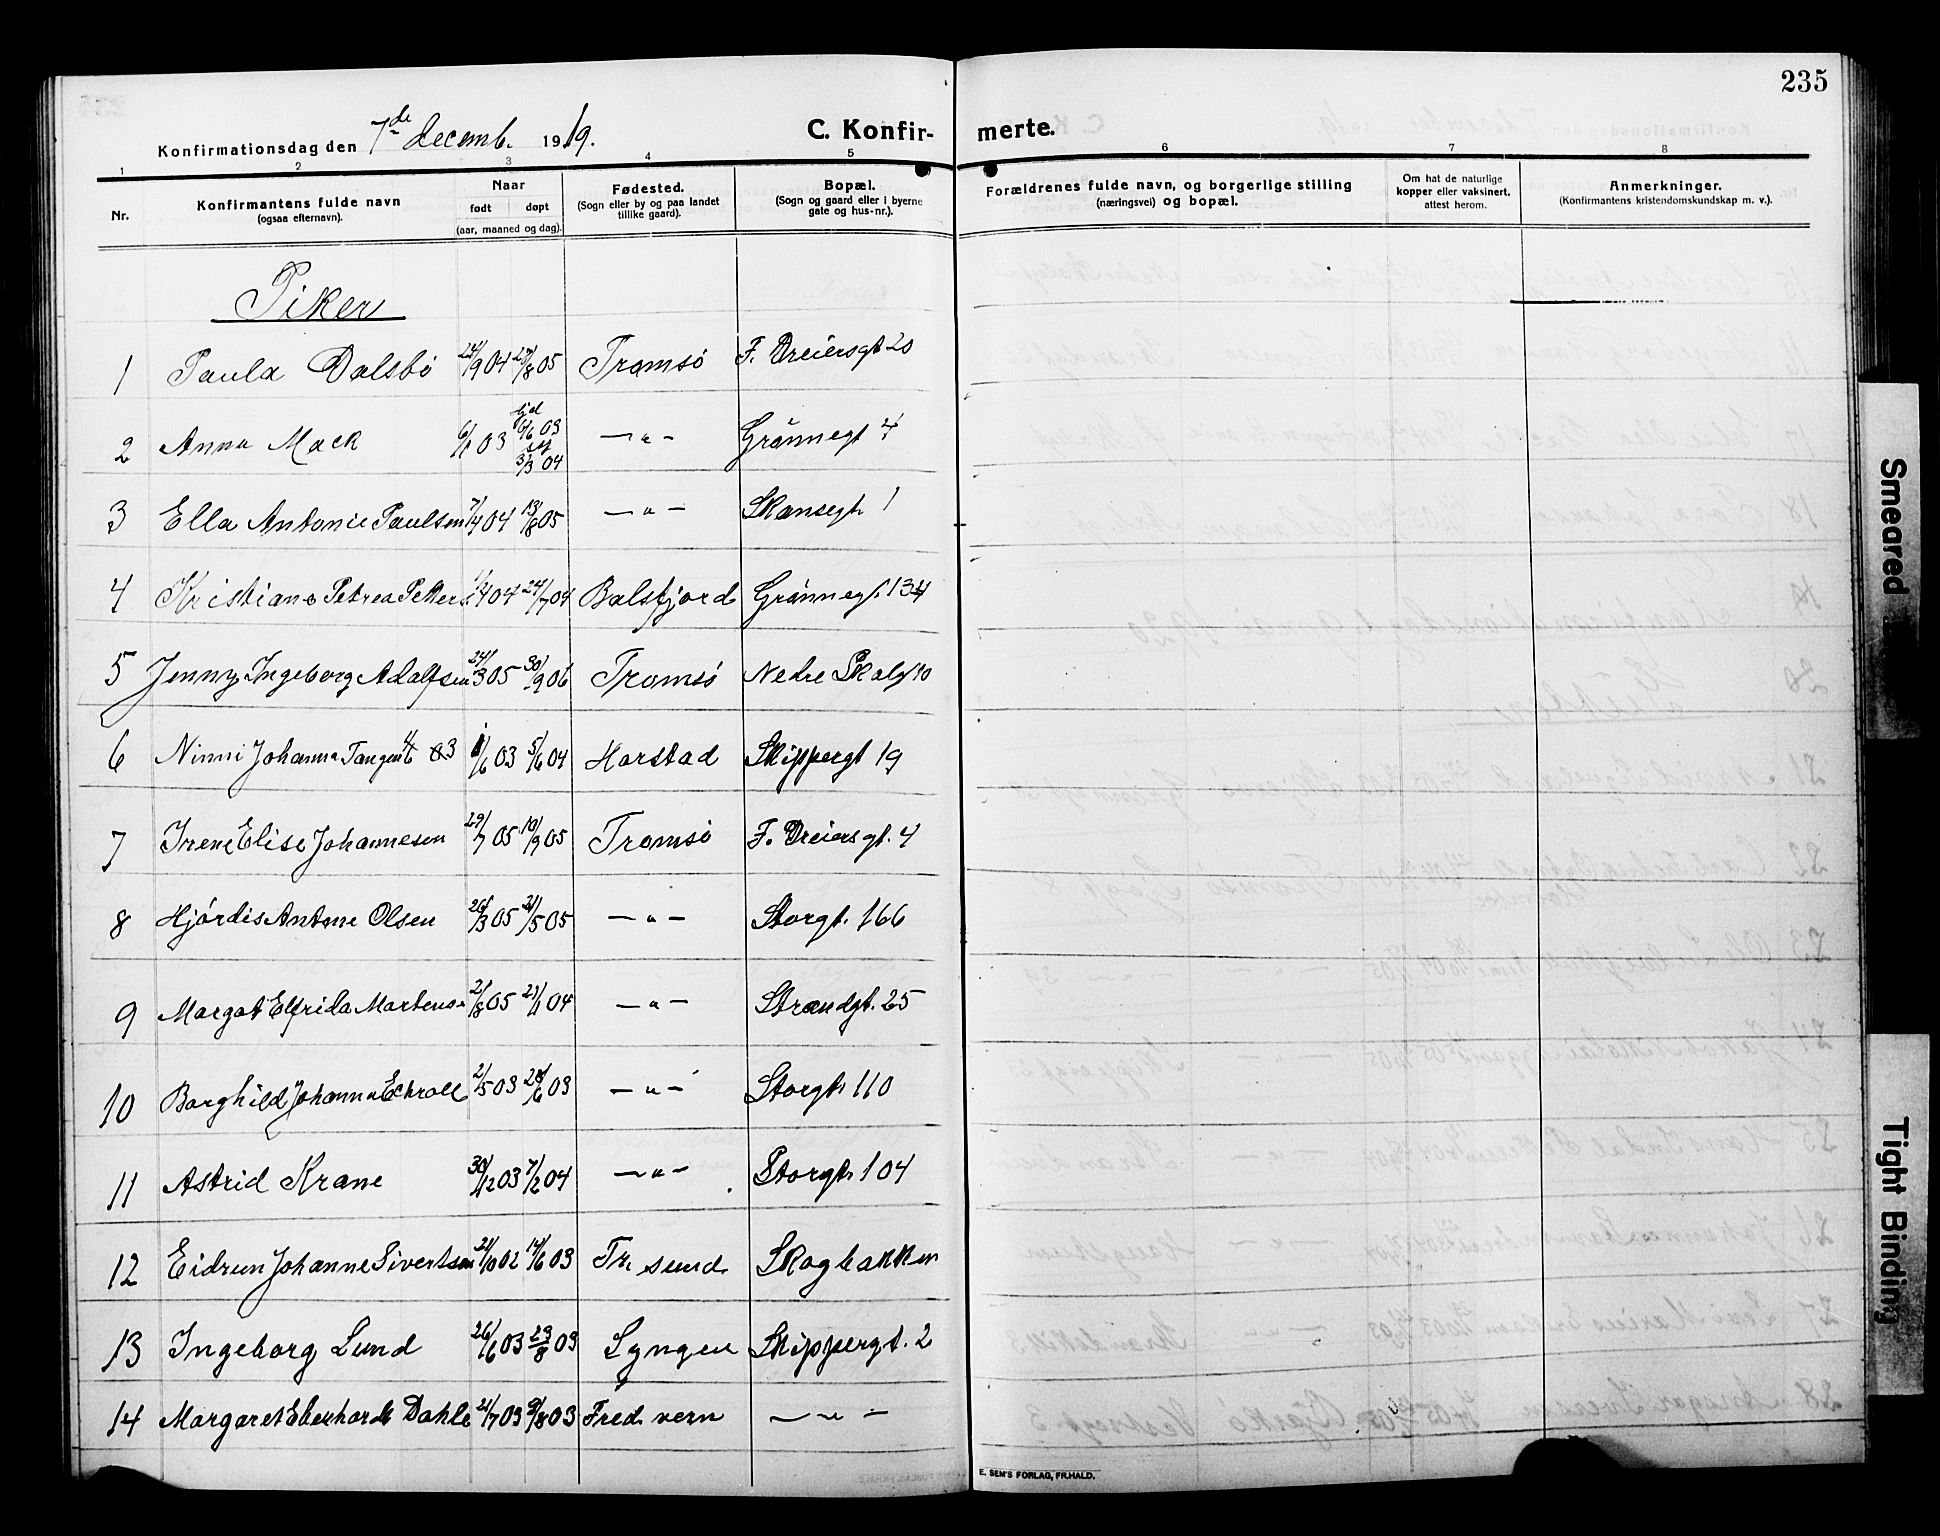 235
Konfirmationsdag den 7de decemb. 1919.
C. Konfir-
merte.
1 2 3 4 5 6 7 8
Nr.
Konfirmantens fulde navn
(ogsaa efternavn).
Naar
født døpt
(aar, maaned og dag).
Fødested.
(Sogn eller by og paa landet
tillike gaard).
Bopæl.
(Sogn og gaard eller i byerne
gate og hus-nr.).
Forældrenes fulde navn, og borgerlige stilling
(næringsvei) og bopæl.
Om hat de naturlige
kopper eller vaksinert.
attest herom.
Anmerkninger.
(Konfirmantens kristendomskundskap m. v.).
Piker
1 Paula Dalsbö 24/9 04 27/8 05 Tromsö F. Dreiersgt 20
2 Anna Mack 6/1 03 hjd 6/6 03 3/3 04 —"— Grönnegt 4
3 Ella Antonie Paulsen 7/4 04 13/8 05 —"— Skansegt. 1
4 Kristiane Petrea 04 24/7 04 Balsfjord Grönnegt. 134
5 Jenny Ingeborg Adolfsen 24/3 05 30/9 06 Tromsö Nedre Skolegt 10
6 Ninni Johanna 03 5/6 04 Harstad Skippergt 19
7 Irene Elise Johannesen 29/7 05 10/9 05 Tromsö F. Dreiersgt. 4
8 Hjördis Antone Olsen 26/3 05 21/5 05 —"— Storgt. 166
9 Margot Elfrida Martens 2/8 05 04 —"— Strandgt. 25
10 Borghild Johanna Eckroll 2/5 03 28/6 03 —"— Storgt. 110
11 Astrid Krane 30/12 03 7/2 04 —"— Storgt. 104
12 Eidrun Johanne Sivertsen 24/10 02 14/6 03 Tr. sund Skogbakken
13 Ingeborg Lund 26/6 03 23/8 03 Lyngen Skippergt. 2
14 Margaret Eberhardt Dahle 21/7 03 9/8 03 Fred. vern —"—
E. SEM'S FORLAG, FR.HALD.
Smeared
Tight Binding